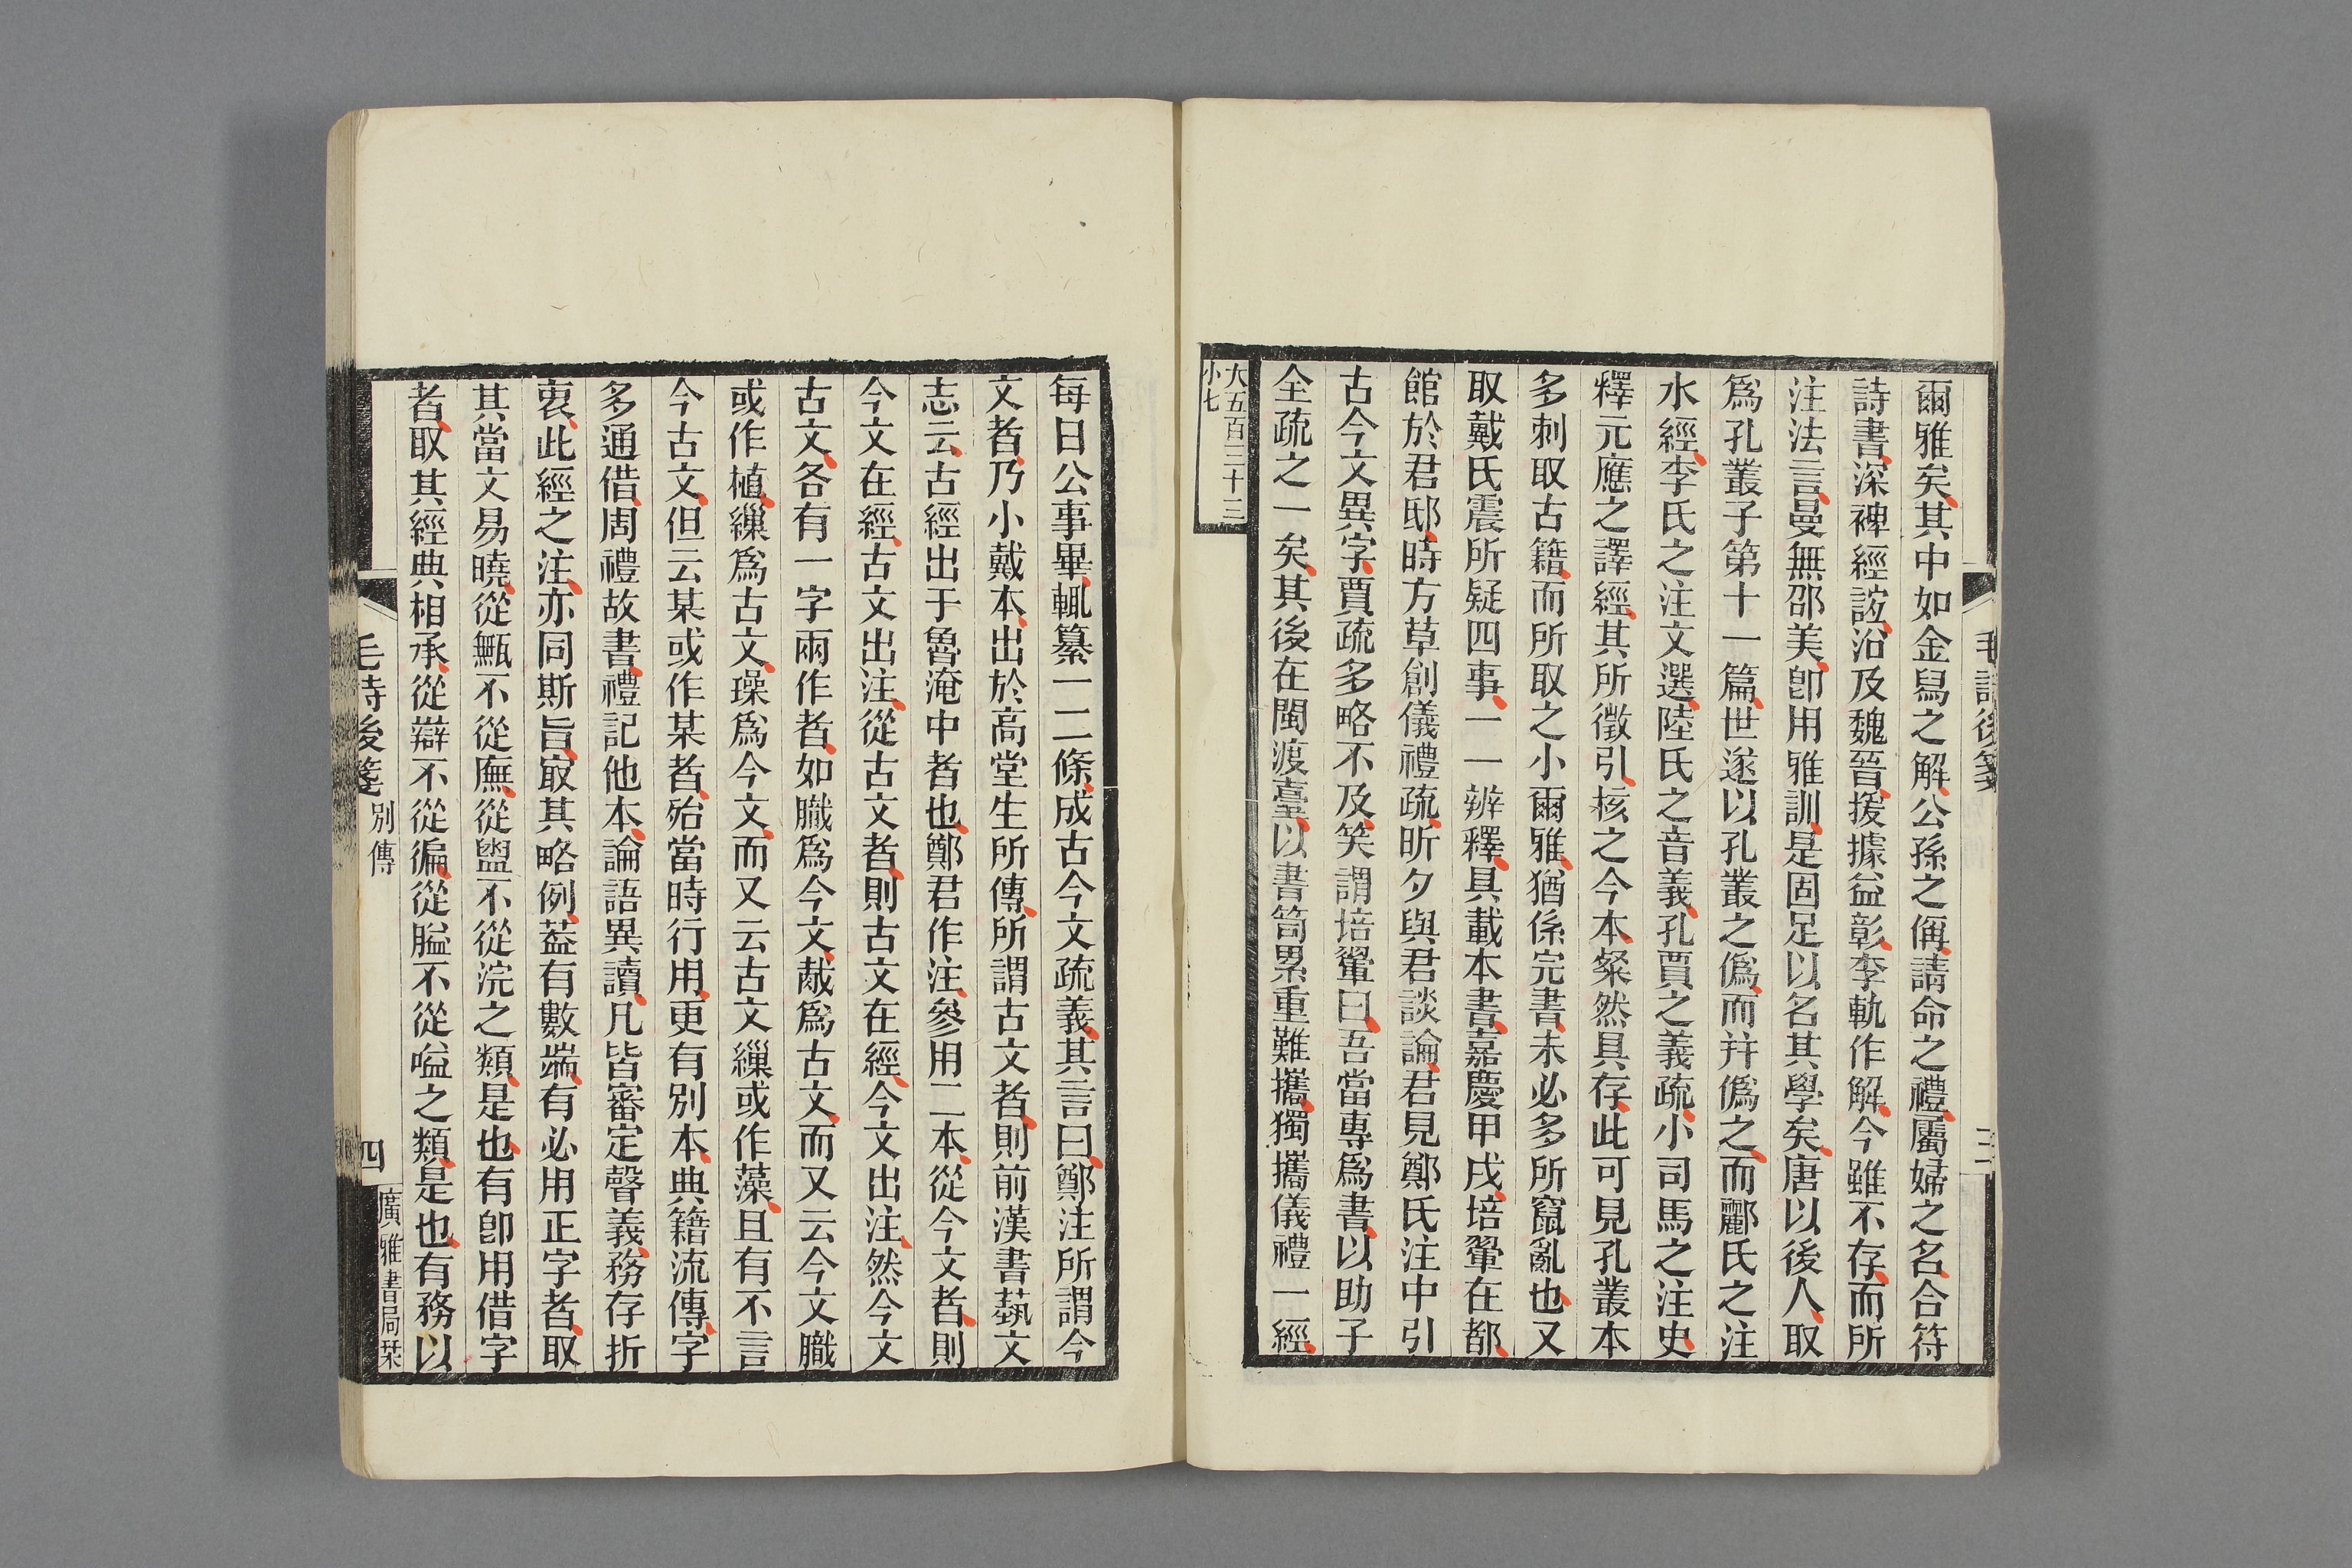 爾雅矣其中如金舄之解公孫之偁請命之禮屬婦之名合符
詩書深裨經誼沿及魏晉援據益彰李軌作解今雖不存而所
注法言曼無邵美卽用雅訓是固足以名其學矣唐以後人取
爲孔叢子第十一篇世遂以孔叢之僞而幷僞之而酈氏之注
水經李氏之注文選陸氏之音義孔賈之義疏小司馬之注史
釋元應之譯經其所徵引核之今本粲然具存此可見孔叢本
多刺取古籍而所取之小爾雅猶係完書未必多所竄亂也又
取戴氏震所疑四事一一辨釋具載本書嘉慶甲戌培翬在都
館於君邸時方草創儀禮疏昕夕與君談論君見鄭氏注中引
古今文異字賈疏多略不及笑謂培翬曰吾當專爲書以助子
全疏之一矣其後在閩渡臺以書笥累重難攜獨攜儀禮一經
大五百三十三
小七
毛詩後箋
三
每日公事畢輒纂一二條成古今文疏義其言曰鄭注所謂今
文者乃小戴本出於高堂生所傳所謂古文者則前漢書藝文
志云古經出于魯淹中者也鄭君作注參用二本從今文者則
今文在經古文出注從古文者則古文在經今文出注然今文
古文各有一字兩作者如膱爲今文胾爲古文而又云今文膱
或作植繅爲古文璪爲今文而又云古文繅或作藻且有不言
今古文但云某或作某者殆當時行用更有別本典籍流傳字
多通借周禮故書禮記他本論語異讀凡皆審定聲義務存折
衷此經之注亦同斯旨㝡其略例葢有數端有必用正字者取
其當文易曉從甒不從廡從盥不從浣之類是也有卽用借字
者取其經典相承從辯不從徧從膉不從嗌之類是也有務以
毛詩後箋
別傳
四
廣雅書局栞